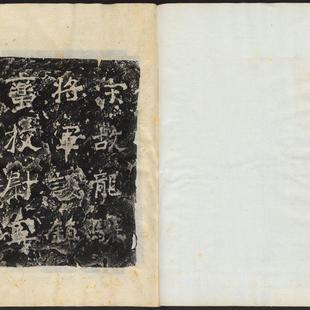 宋故龍驤
將軍護鎮
蠻校尉寧